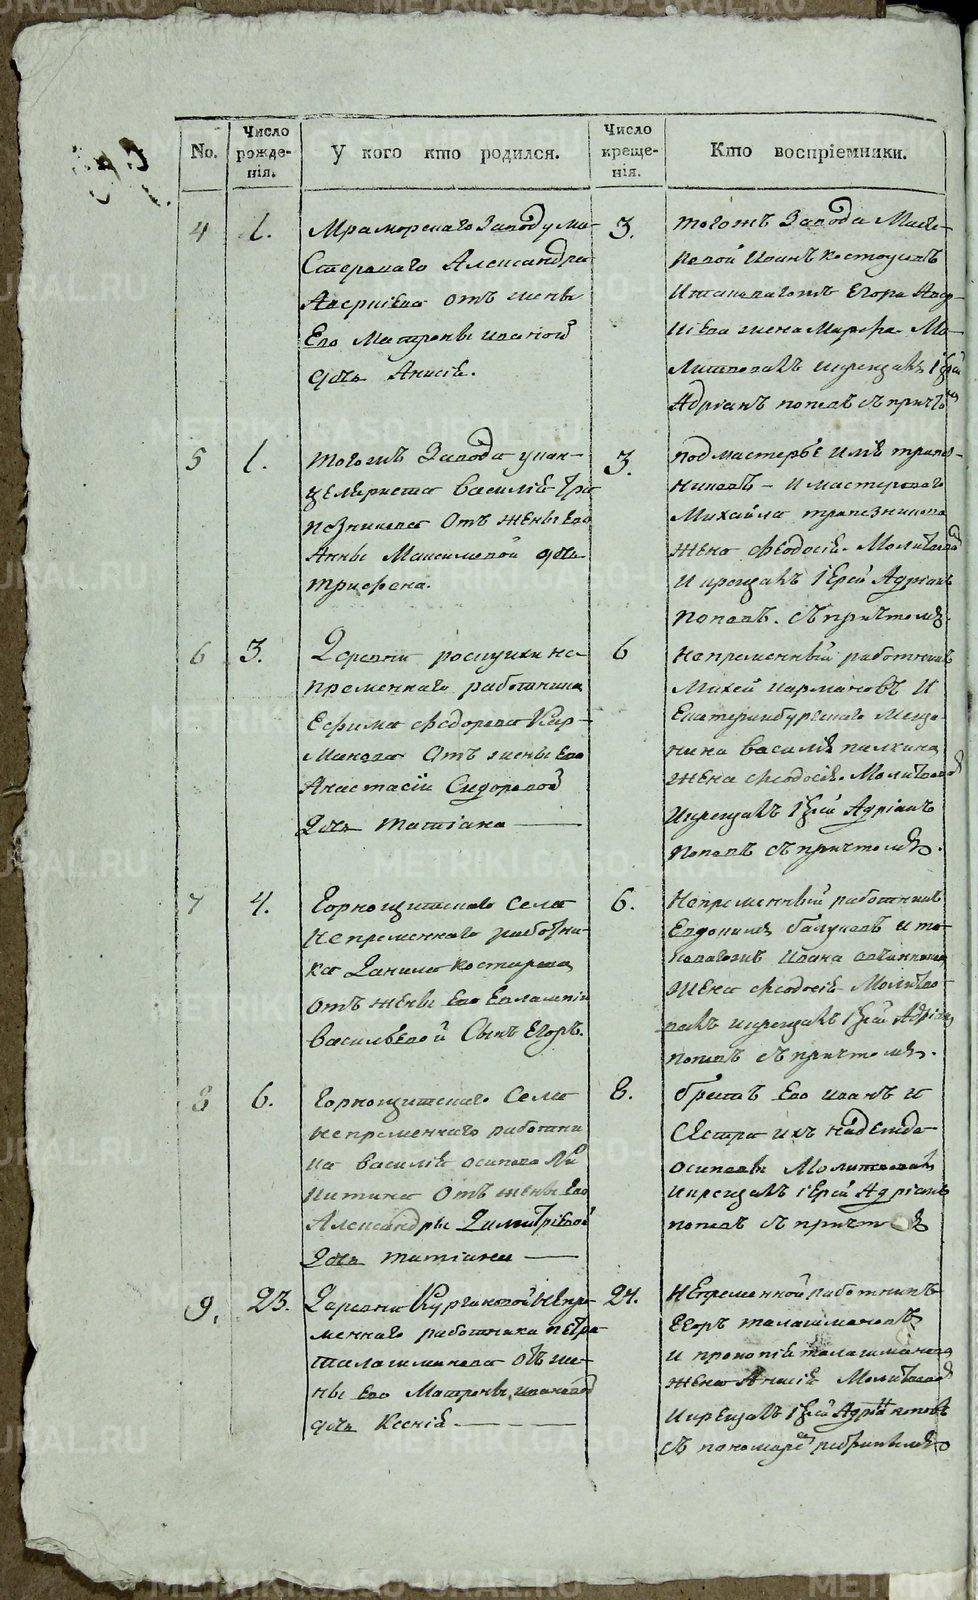 No.
Число рожденія.
У кого кто родился.
Число крещенія.
Кто воспріемники.
4
1.
Мраморскаго Завод у ма-
стероваго Александра
Аверкіева отъ жены
Его Матроны Ивановой
дочь Анисія.
3.
тогожъ Завода Масте-
ровой Иванъ Костоусовъ
Егора Авер-
кіева жена Марфа. Мо-
литвовалъ икрещалъ Іерей
Адріанъ поповъ съ причто
5
1.
тогожъ Завода укан-
целяриста Василія Тра
пезникова Отъ жены Его
Анны Максимовой дочь
трифена.
3.
подмастерье трапез-
никовъ - И мастероваго
Михайла трапезникова
жена Феодосія. Молитвова
И крещалъ Іерей Адріанъ
поповъ. съ причтомъ.
6
3.
Деревни роскуихи не-
пременнаго работника
Ефима Федорова Кар-
манова Отъ жены Его
Анастасіи Сидоровой
Дочь татіана
6
Непременный работникъ
Михей кармановъ И
Екатеринбургскаго Меща-
нина Василія пилкина
жена Феодосія. Молитвовал
Икрещалъ Іерей Адріанъ
поповъ съ причтомъ.
7
4.
Горнощитскаго Села
Непременнаго работни-
ка Данила костарева
отъ жены Его Евлампіи
Васильевой Сынъ Егоръ.
6.
Непременный работникъ
Евдокимъ и то-
Ивана овчинникова
жена Феодосія Молитво-
валъ икрещалъ Іерей Адріанъ
поповъ съ причтомъ.
8
6.
Горнощитскаго Села
непременнаго работни
ка Василія осипова Ни
китина Отъ жены Его
Александры Димитріевой
Дочь татіана
8.
братъ Его иванъ и
Сестра ихъ надежда
осиповы Молитвовалъ
икрещалъ Іерей Адріанъ
поповъ съ причт
9.
23.
Деревни Кургановой Непре-
меннаго работника петра
талашманова отъ же-
ны Его Матроны ивановой
дочь Ксенія.
24.
Непременной работникъ
Егоръ талашмановъ
и прокопія талашманова
жена Анисія Молитвовал
икрещалъ Іерей Адріанъ поповъ
съ пономаремъ
METRIKI.GASO-URAL.RU